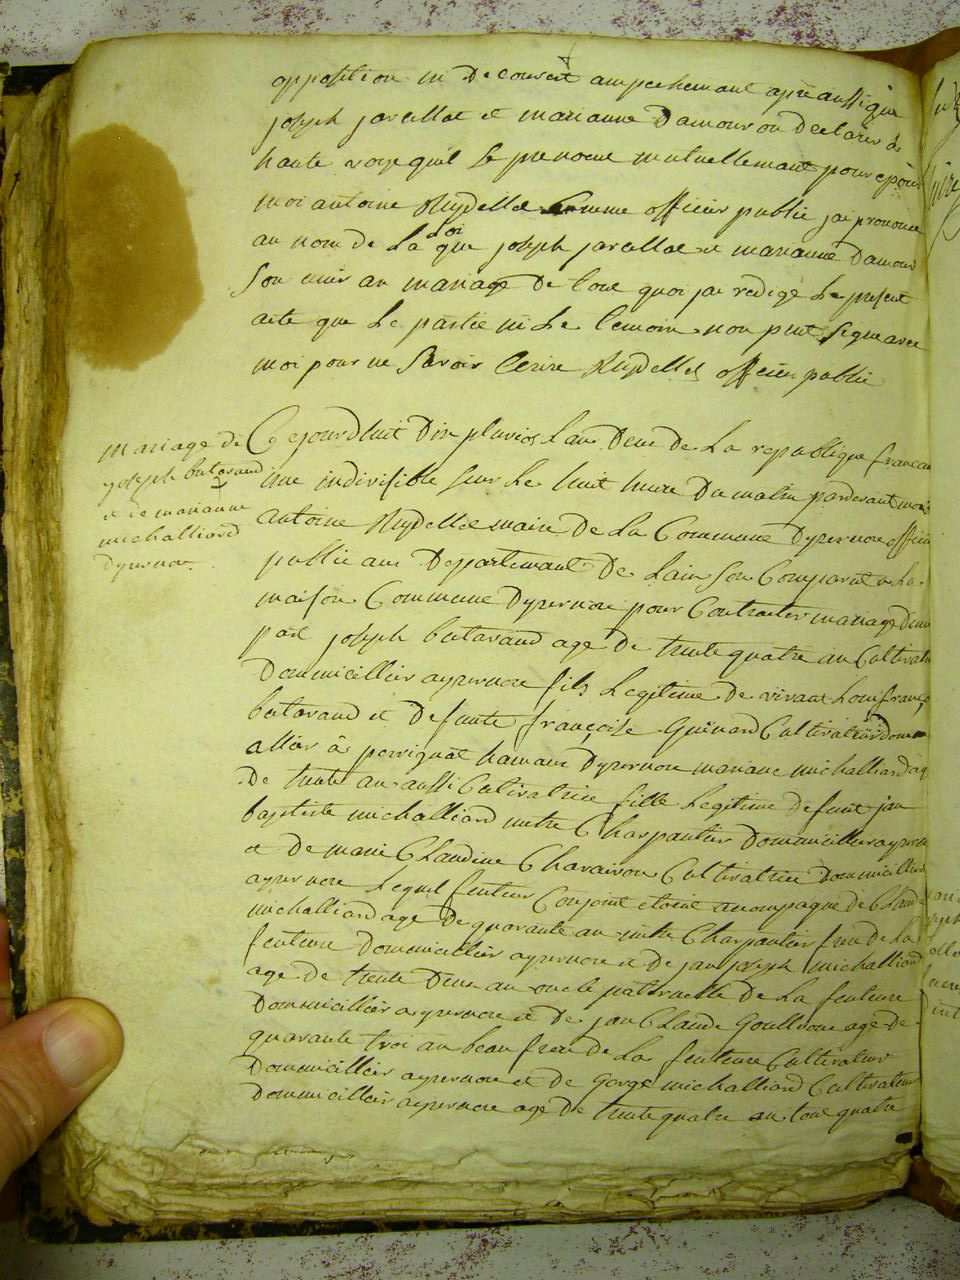 opposition ni decouvert ampechemant aprè aussi que
joseph javellot et marianne Damour on declarer a
haute voye quil se prenoue mutuellemant pour epous
moi antoine Rydellet comme officier public jai prononce
au nom de La loi que joseph javellot et marianne Damour
son unis an mariage de tout quoi jai redigé Le present
acte que Le partie ni Le temoin non peut signe avec
moi pour ne savoir Ecrire Rydellet officier public
Mariage de
joseph butavand
et de marianne
michalliard
dyzernore
Cejourdhuit Dix pluvios Lan Deux de La republique francai
une indivisible sur Le huit heure du matin pardevant moi
antoine Rydellet maire de La Commune Dyzernore officier
public au Departemant De Lain son Comparut a La
maison Commune Dyzernore pour Contracter mariage d'une
part joseph butavand age de trente quatre an Cultivateur
Dommicillier ayzernore fils Legitime de vivant Loui françoi
butavand et defunte françoise Guinard Cultivateur Domm
allier à perrignat hameau Dyzernore mariane michalliard age
De trente an aussi Cultivatrice fille Legitime defunt jan
baptiste michalliard mitre Charpantier Dommicillier ayzernore
et De marie Claudine Chavaison Cultivatrice Dommicillier
ayzernore Lequel feuteur Conjoint etoient acompagne de Claude
michalliard age de quarante an mitre Charpantier frere de La
feuteure Dommicillier ayzernore et de jan joseph michalliard
age de trente Deux an oncle paternelle de La feuteure
Dommicillier ayzernore et de jan Claude Goulloux age de
quarante troi an beau frere de La feuteure Cultivateur
Dommicillier ayzernore et de Gorge michalliard Cultivateur
Dommicillier ayzernore age de trente quatre an tout quatre